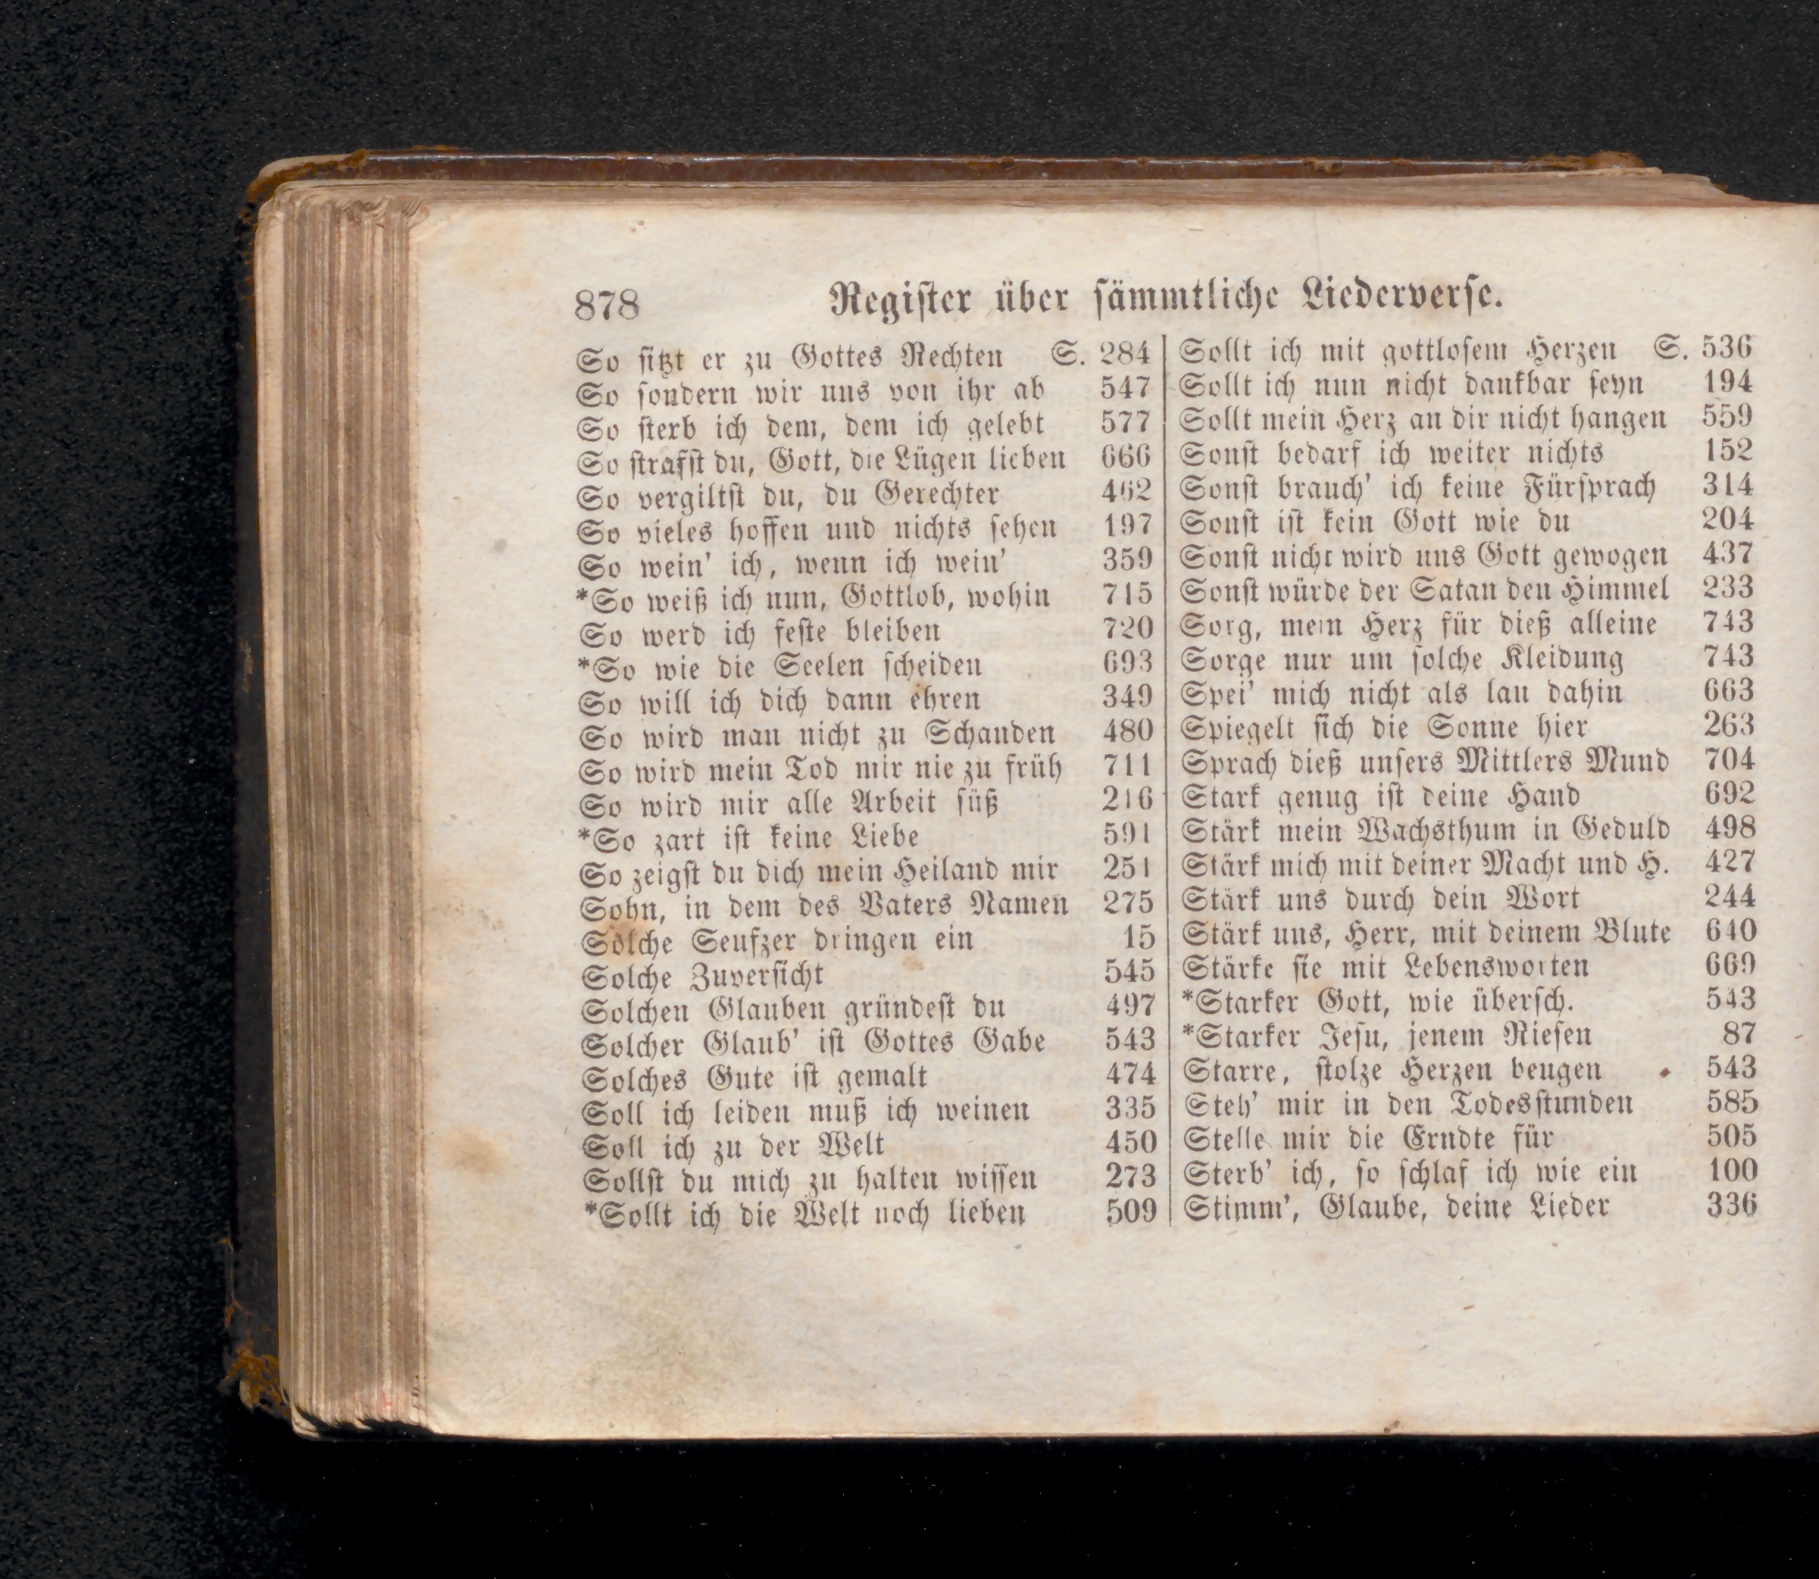 878 Register über sämmtliche Liederverse.
So sitzt er zu Gottes Rechten S. 284
So sondern wir uns von ihr ab 547
So sterb ich dem, dem ich gelebt 577
So strafst du, Gott, die Lügen lieben 666
So vergiltst du, du Gerechter 462
So vieles hoffen und nichts sehen 197
So wein' ich, wenn ich wein' 359
*So weiß ich nun, Gottlob, wohin 715
So werd ich feste bleiben 720
*So wie die Seelen scheiden 693
So will ich dich dann ehren 349
So wird man nicht zu Schanden 480
So wird mein Tod mir nie zu früh 711
So wird mir alle Arbeit süß 216
*So zart ist keine Liebe 591
So zeigst du dich mein Heiland mir 251
Sohn, in dem des Vaters Namen 275
Solche Seufzer dringen ein 15
Solche Zuversicht 545
Solchen Glauben gründest du 497
Solcher Glaub' ist Gottes Gabe 543
Solches Gute ist gemalt 474
Soll ich leiden muß ich weinen 335
Soll ich zu der Welt 450
Sollst du mich zu halten wissen 273
*Sollt ich die Welt noch lieben 509
Sollt ich mit gottlosem Herzen S. 536
Sollt ich nun nicht dankbar seyn 194
Sollt mein Herz an dir nicht hangen 559
Sonst bedarf ich weiter nichts 152
Sonst brauch' ich keine Fürsprach 314
Sonst ist kein Gott wie du 204
Sonst nicht wird uns Gott gewogen 437
Sonst würde der Satan den Himmel 233
Sorg, mein Herz für dieß alleine 743
Sorge nur um solche Kleidung 743
Spei' mich nicht als lau dahin 663
Spiegelt sich die Sonne hier 263
Sprach dieß unsers Mittlers Mund 704
Stark genug ist deine Hand 692
Stärk mein Wachsthum in Geduld 498
Stärk mich mit deiner Macht und H. 427
Stärk uns durch dein Wort 244
Stärk uns, Herr, mit deinem Blute 640
Stärke sie mit Lebensworten 669
*Starker Gott, wie übersch. 543
*Starker Jesu, jenem Riesen 87
Starre, stolze Herzen beugen 543
Steh' mir in den Todesstunden 585
Stelle mir die Erndte für 505
Sterb' ich, so schlaf ich wie ein 100
Stimm', Glaube, deine Lieder 336